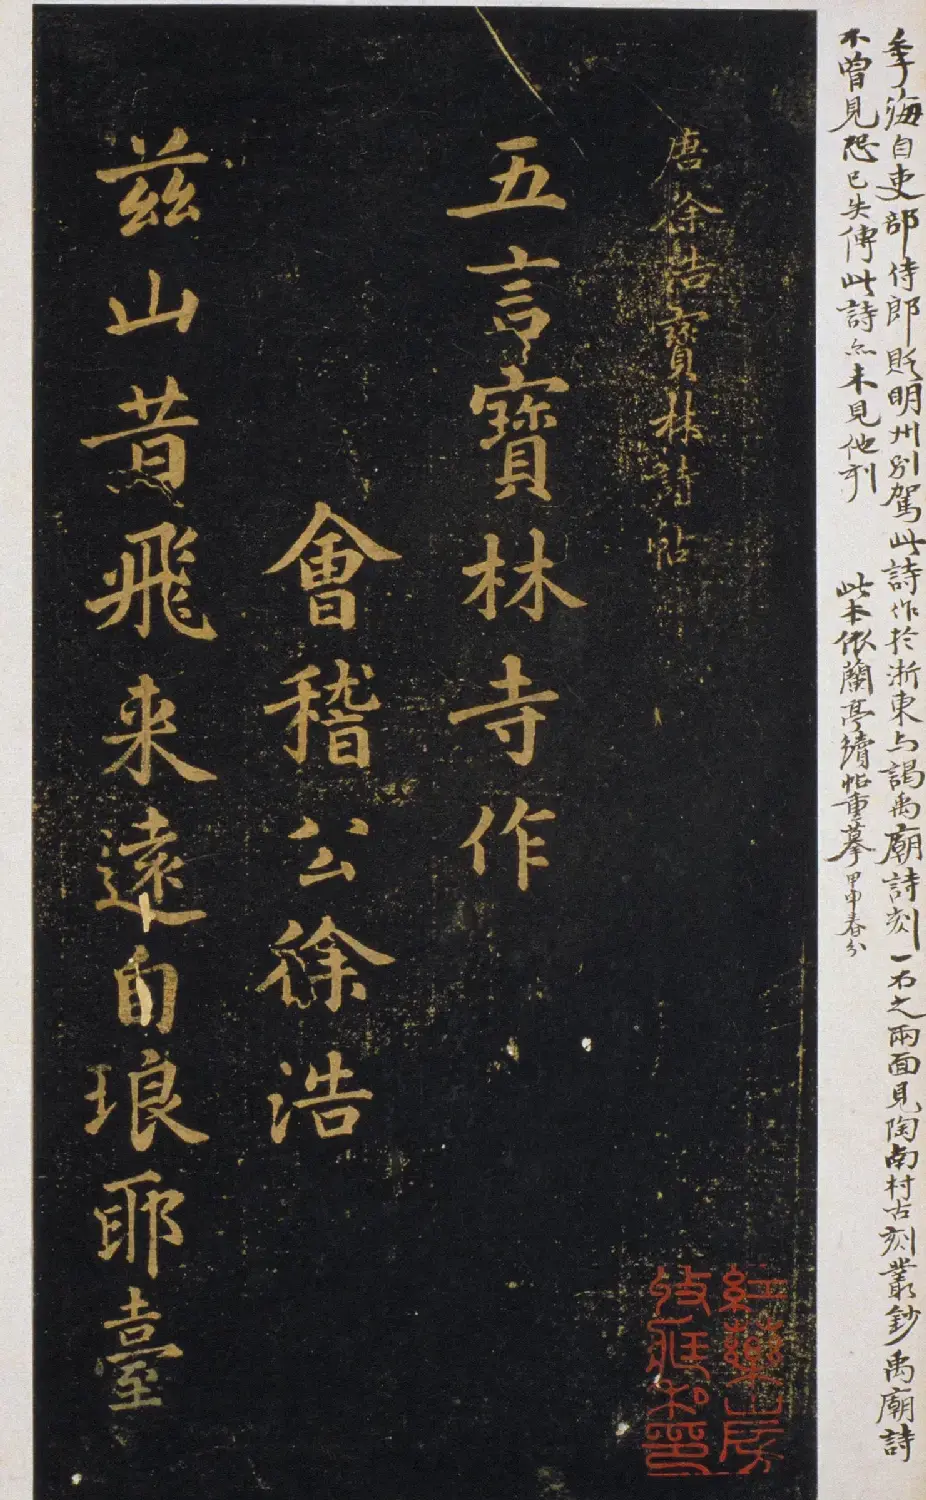 季海自吏部侍郎貶明州別駕此詩作於浙東與謁禹廟詩刻一石之兩面見陶南村古刻叢鈔禹廟詩
不曾見恐已失傳此詩亦未見他刻 此本依蘭亭續帖重摹 甲申春分
唐徐浩寶林詩帖
五言寶林寺作
會稽公徐浩
茲山昔飛來遠自琅耶臺
紅藥山房